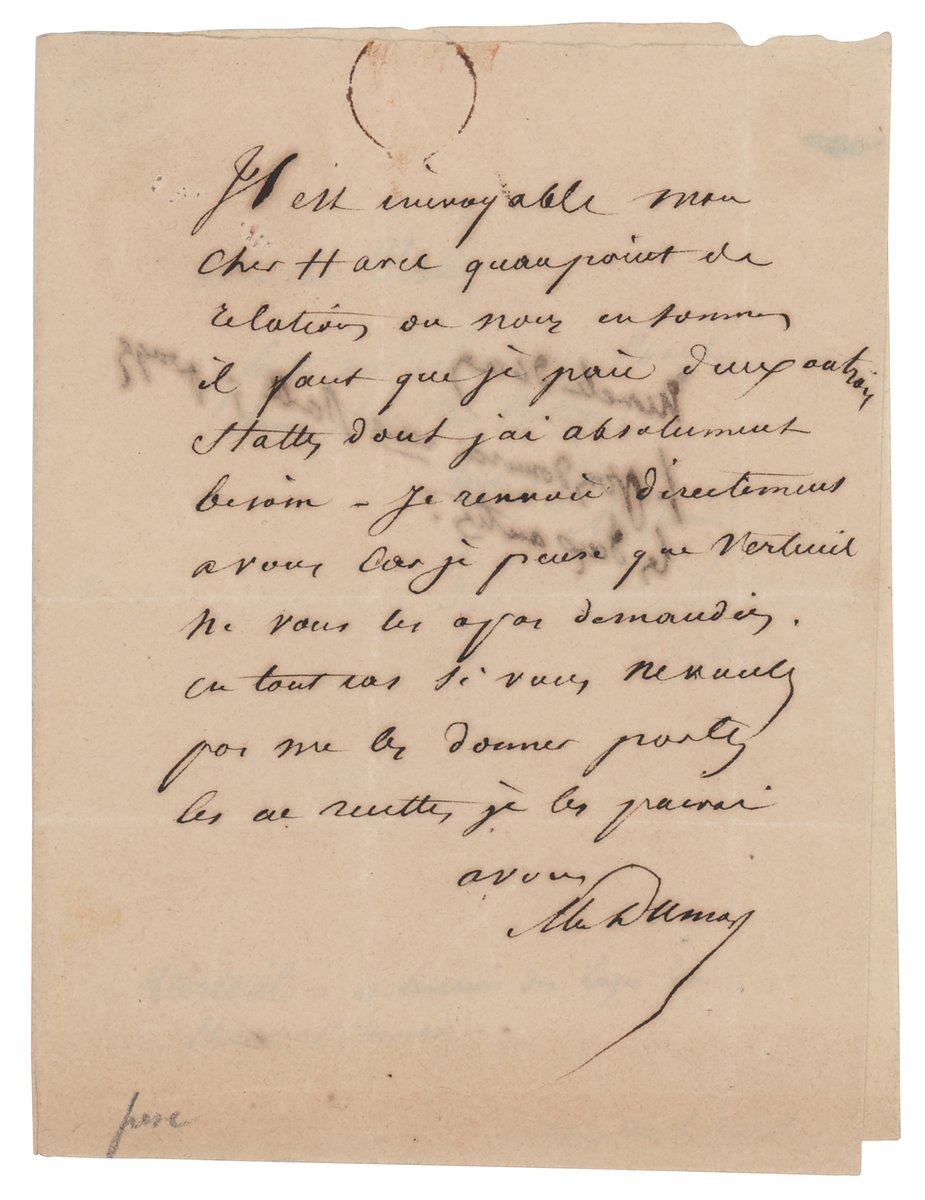 Il est incroyable mon
cher Harel quau point de
relations ou nous en sommes
il faut que je paie deux
Stalles dont jai absolument
besoin – Je renvoie directement
a vous car je pense que Verteuil
ne vous les a pas demandées.
en tout cas si vous ne voulez
pas me les donner portez
les en recettes je les paierai
a vous
Alex Dumas
pere